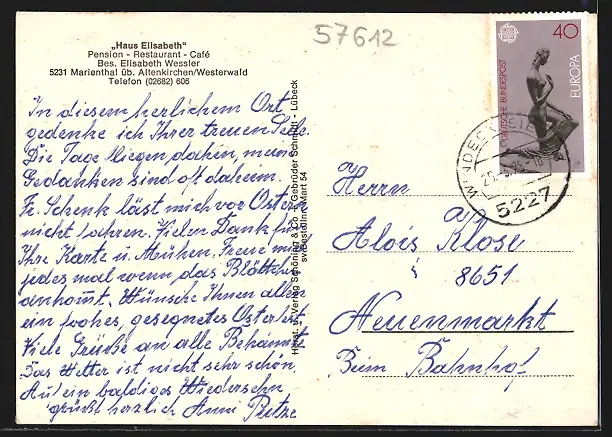 „Haus Elisabeth"
Pension - Restaurant - Café
Bes. Elisabeth Wessler
5231 Marienthal üb. Altenkirchen/Westerwald
Telefon (02682) 606
57612
In diesem herlichem Ort
gedenke ich Ihrer treuen Seele.
Die Tage fliegen dahin, mein
Gedanken sind oft daheim.
Fr. Schenk läst mich vor Ostern
nicht fahren. Vielen Dank für
Ihre Karte u. Mühen. Freue mich
jedes mal wenn das Blättchen
ankommt. Wünsche Ihnen allen
ein frohes, gesegnetes Osterfest
Viele Grüße an alle Bekannte
Das Wetter ist nicht sehr schön.
Auf ein baldiges Wiedersehn
grüßt herzlich Anna
Herst. u. Verlag Schöning & Co. + Gebrüder Schmidt, Lübeck
40
DEUTSCHE BUNDESPOST
EUROPA
5227
Herrn
Alois Klose
8651
Neuenmarkt
Beim Bahnhof